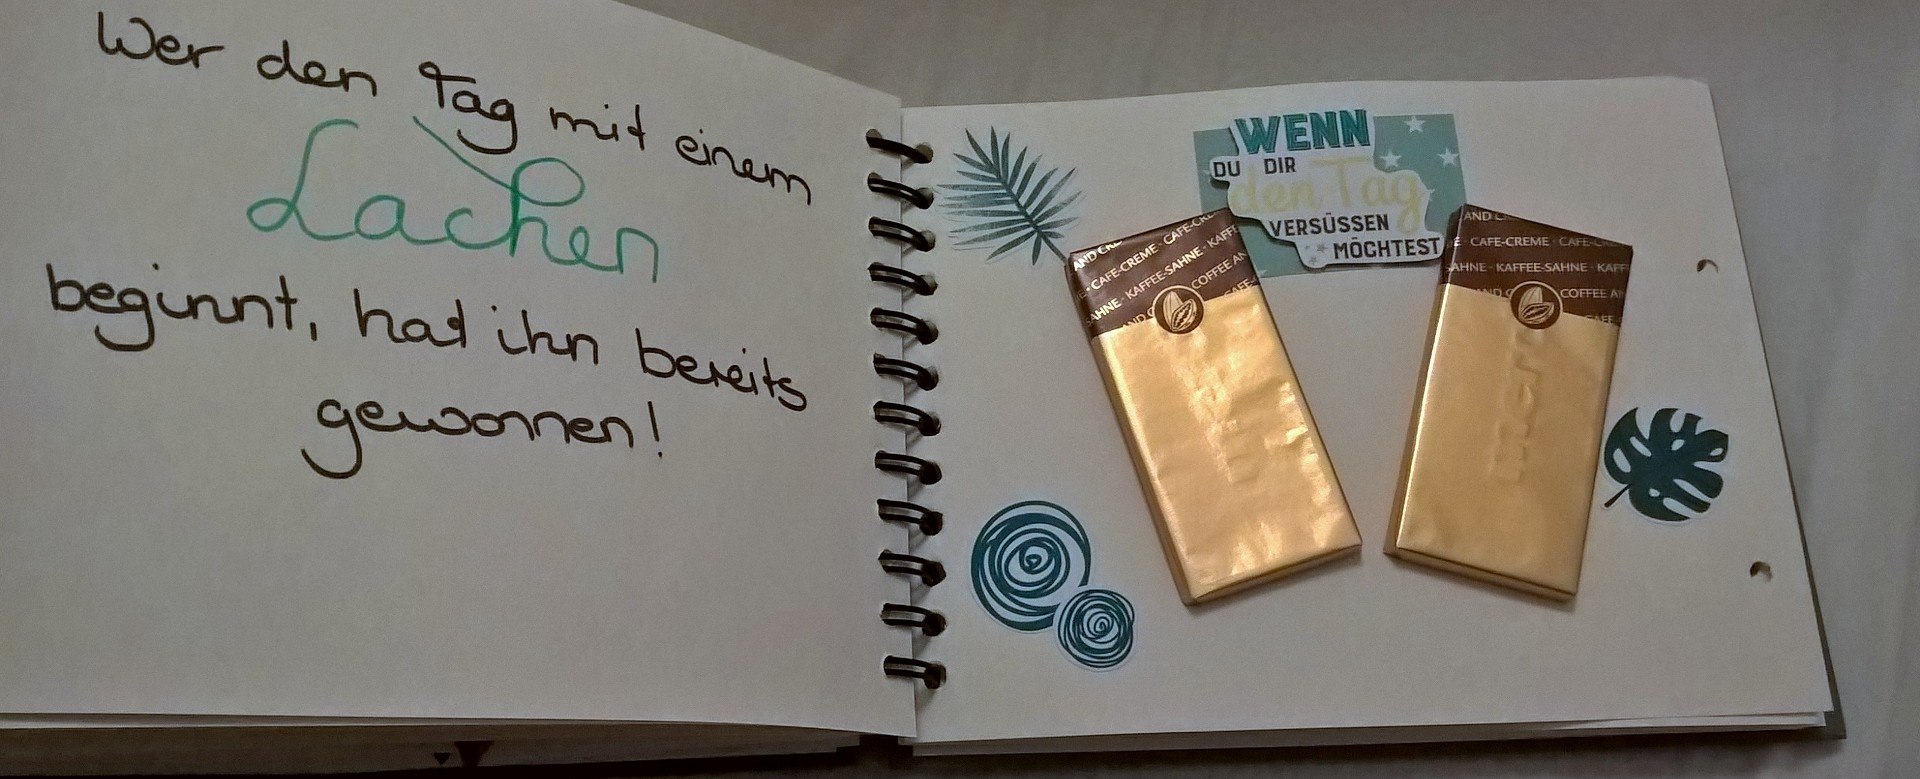 Wer den Tag mit einem
Lachen
beginnt, hat ihn bereits
gewonnen!
WENN
DU DIR
den Tag
VERSÜSSEN
MÖCHTEST
AND CRE
CAFE-CREME · CAFE-CRE
SAHNE · KAFFEE-SAHNE · KAFFE
AND C COFFEE AN
CAFE-
merci
AND C
E · CAFE-CREME · CAFE-C
AHNE · KAFFEE-SAHNE · KAFF
AND C COFFEE A
CAFE
merci